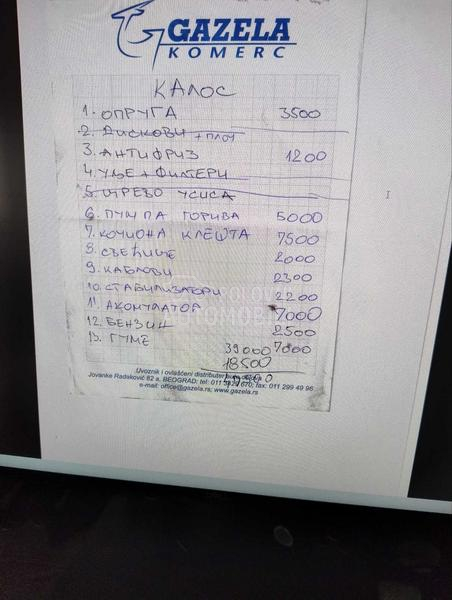 GAZELA
KOMERC
КАЛОС
1. ОПРУГА 3500
2. ДИСКОВИ + ПЛОЧ
3. АНТИФРИЗ 1200
4. УЉЕ + ФИЛТЕРИ
5. ЦРЕВО УСИСА
6. ПУМПА ГОРИВА 5000
7. КОЧИОНА КЛЕШТА 7500
8. СВЕЋИЦЕ 2000
9. КАБЛОВИ 2300
10. СТАБИЛИЗАТОРИ 2200
11. АКОМУЛАТОР 7000
12. БЕНЗИН 2500
13. ГУМЕ 7000
39000
18500
Uvoznik i ovlašćeni distributer
Jovanke Radaković 82 a, BEOGRAD; tel: 011 fax: 011 299 49 96
e-mail: office@gazela.rs; www.gazela.rs